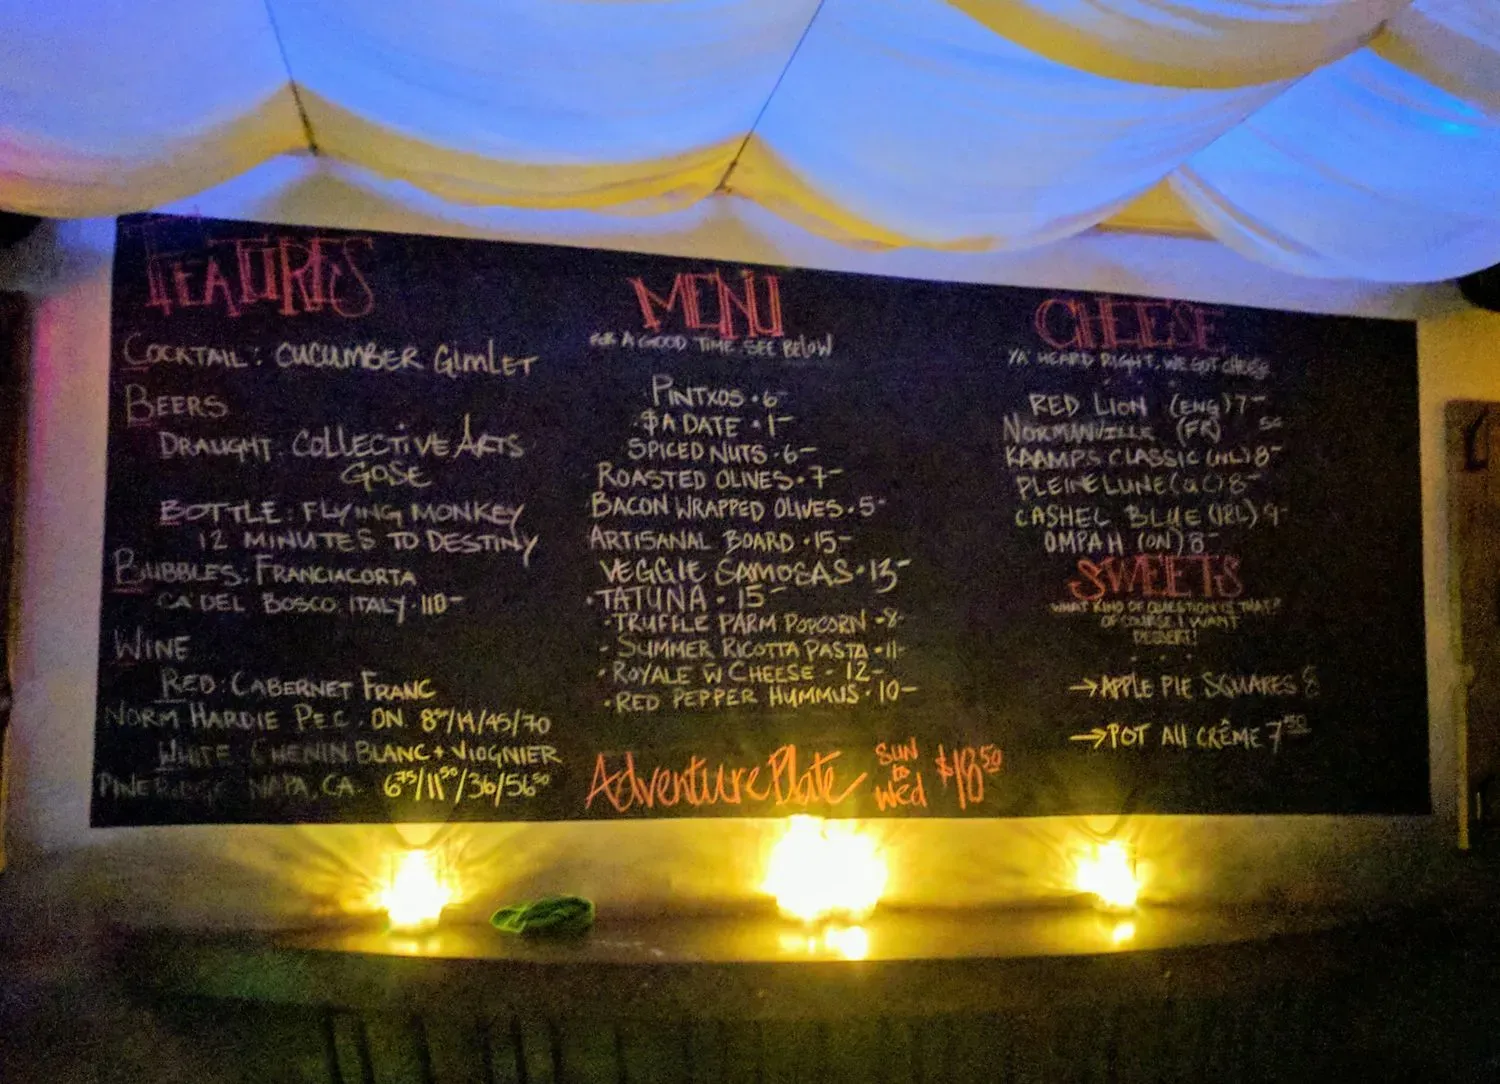 FEATURES
COCKTAIL: CUCUMBER GIMLET
BEERS
DRAUGHT: COLLECTIVE ARTS
GOSE
BOTTLE: FLYING MONKEY
12 MINUTES TO DESTINY
BUBBLES: FRANCIACORTA
CA'DEL BOSCO, ITALY · 110-
WINE
RED: CABERNET FRANC
NORM HARDIE P.E.C. ON.
WHITE: CHENIN BLANC + VIOGNIER
PINE RIDGE NAPA, CA. 6⁷⁵/11⁵⁰/36/56⁵⁰
MENU
FOR A GOOD TIME SEE BELOW
PINTXOS · 6-
$ A DATE · 1-
SPICED NUTS · 6-
ROASTED OLIVES · 7-
BACON WRAPPED OLIVES · 5-
ARTISANAL BOARD · 15-
VEGGIE SAMOSAS · 13-
· TATUNA · 15-
· TRUFFLE PARM POPCORN · 8-
· SUMMER RICOTTA PASTA · 11-
· ROYALE W CHEESE · 12-
· RED PEPPER HUMMUS · 10-
Adventure Plate SUN to Wed $18⁵⁰
CHEESE
YA' HEARD RIGHT, WE GOT CHEESE
RED LION (ENG) 7-
NORMANVILLE (FR)
KAAMPS CLASSIC (NL) 8-
PLEINE LUNE (QC) 8-
CASHEL BLUE (IRL) 9-
OMPAH (ON) 8-
SWEETS
WHAT KIND OF QUESTION IS THAT?
OF COURSE I WANT
DESSERT!
→ APPLE PIE SQUARES 8
→ POT AU CRÊME 7⁵⁰